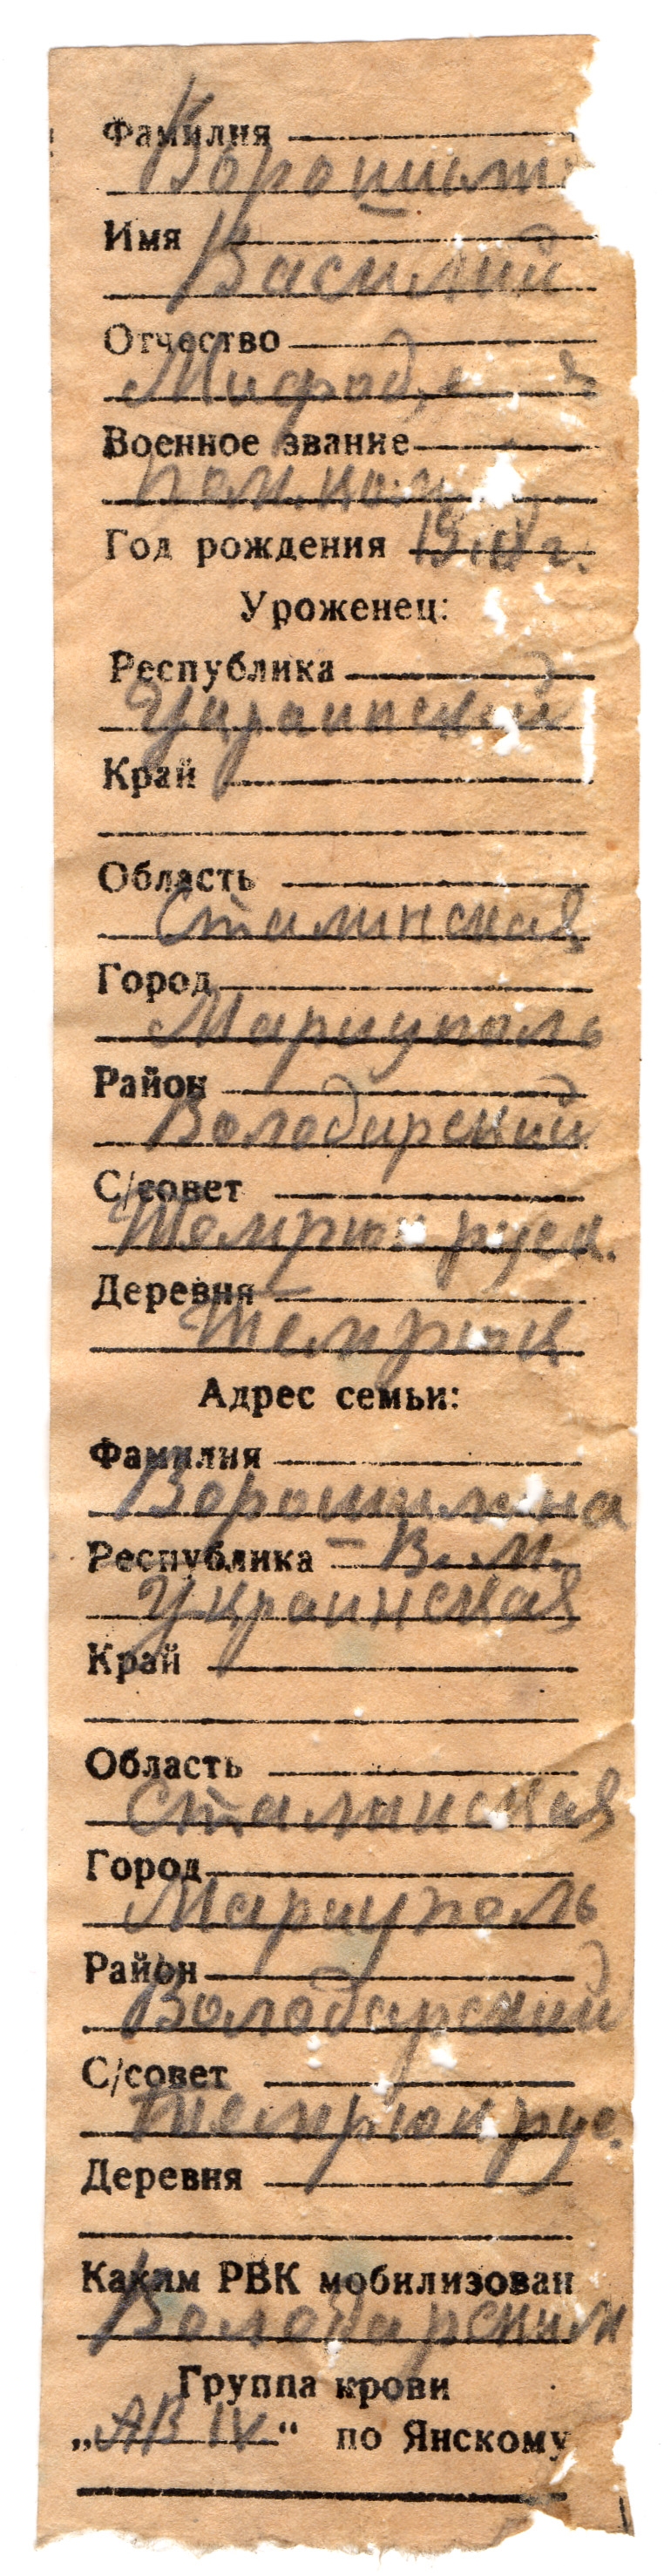 Фамилия
Имя
Василий
Отчество
Военное звание
Год рождения
Уроженец:
Республика
Украинской
Край
Область
Сталинская
Город
Мариуполь
Район
Володарский
С/совет
Деревня
Темрюк
Адрес семьи:
Фамилия
Ворошилина
Республика - В. М.
Украинская
Край
Область
Сталинская
Город
Мариуполь
Район
Володарский
С/совет
Темрюк рус.
Деревня
Каким РВК мобилизован
Володарским
Группа крови
„АВ IV“ по Янскому